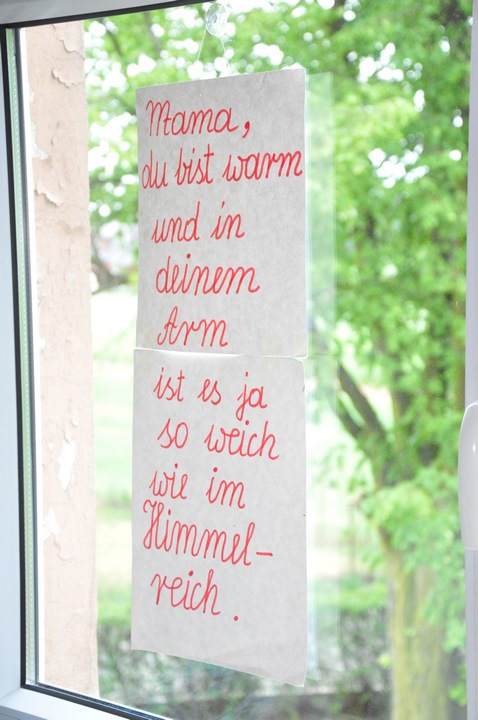 Mama,
du bist warm
und in
deinem
Arm
ist es ja
so weich
wie im
Himmel-
reich.